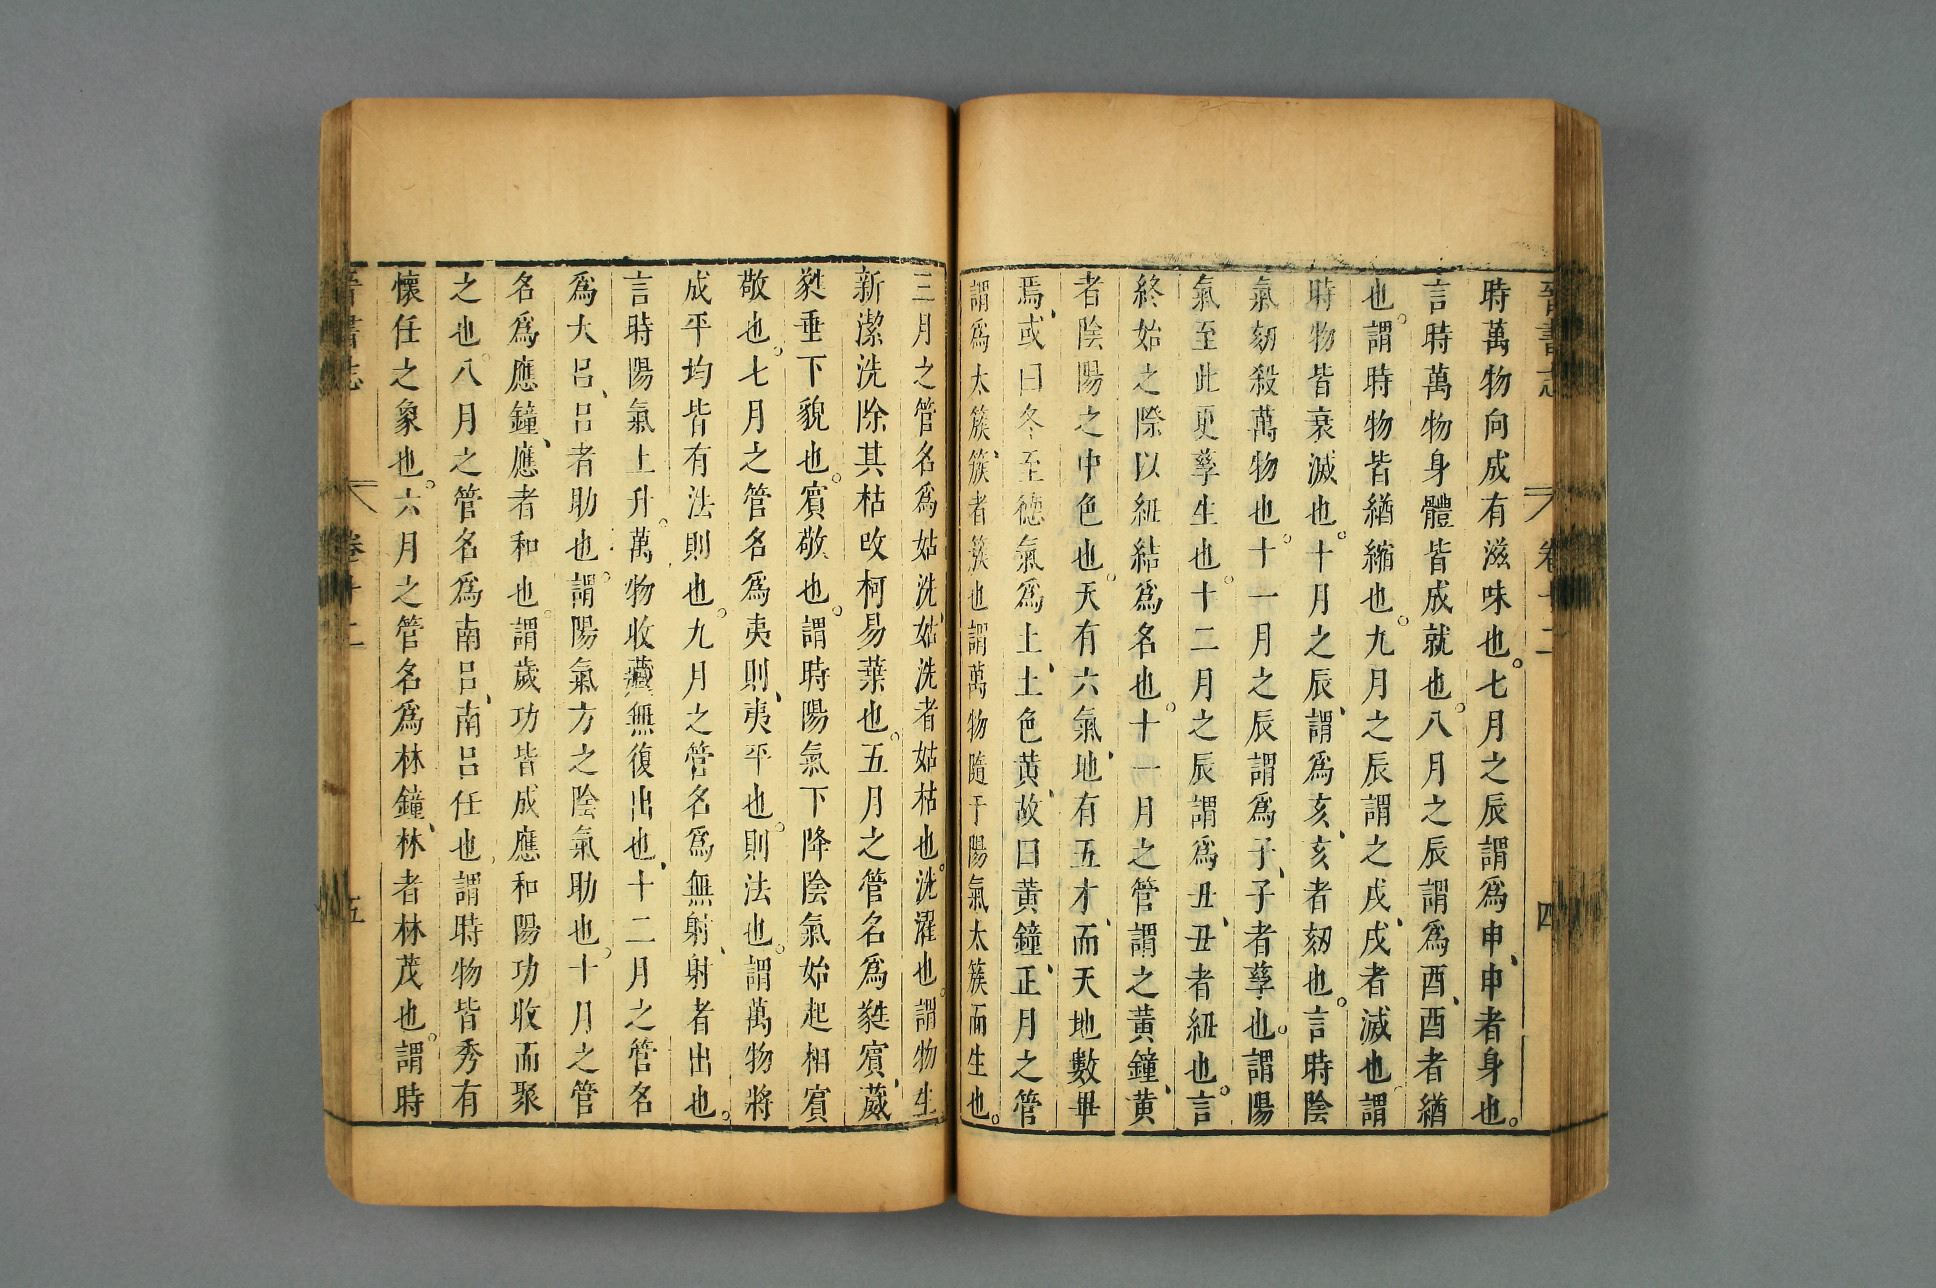 晉書志 卷十二 四
時萬物向成有滋味也。七月之辰謂爲申、申者身也。
言時萬物身體皆成就也。八月之辰謂爲酉、酉者緧
也。謂時物皆緧縮也。九月之辰謂之戌、戌者滅也。謂
時物皆衰滅也。十月之辰、謂爲亥、亥者劾也。言時陰
氣劾殺萬物也。十一月之辰謂爲子、子者孳也。謂陽
氣至此更孳生也。十二月之辰謂爲丑、丑者紐也。言
終始之際以紐結爲名也。十一月之管謂之黃鐘、黃
者陰陽之中色也。天有六氣、地有五才、而天地數畢
焉、或曰冬至德氣爲土、土色黃、故曰黃鐘、正月之管
謂爲太簇、簇者簇也謂萬物隨于陽氣太簇而生也。
三月之管名爲姑洗、姑洗者姑枯也。洗濯也。謂物生
新潔洗除其枯改柯易葉也。五月之管名爲蕤賓、葳
蕤垂下貌也。賓敬也。謂時陽氣下降陰氣始起相賓
敬也。七月之管名爲夷則、夷平也。則法也。謂萬物將
成平均皆有法則也。九月之管名爲無射、射者出也。
言時陽氣上升。萬物收藏無復出也、十二月之管名
爲大呂、呂者助也。謂陽氣方之陰氣助也。十月之管
名爲應鐘、應者和也。謂歲功皆成應和陽功收而聚
之也。八月之管名爲南呂、南呂任也、謂時物皆秀有
懷任之象也。六月之管名爲林鐘、林者林茂也。謂時
晉書志 卷十二 五